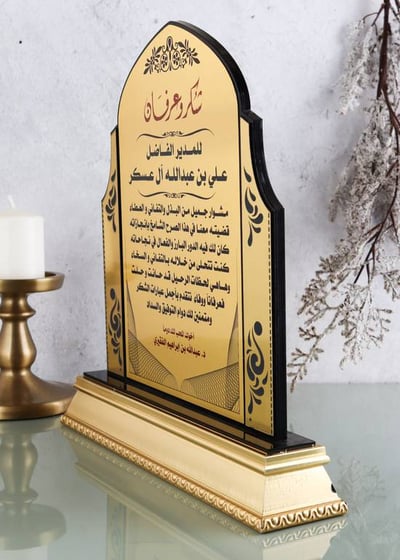 شكر وعرفان
للمدير الفاضل
علي بن عبدالله آل عسكر
مشوار جميل من البذل والتفاني و العطاء
قضيته معنا في هذا الصرح الشامخ وانجازاته
كان لك فيه الدور البارز والفعال في نجاحاته
كنت تتحلى من خلاله بالتفاني و السخاء
وهاهي لحظات الرحيل قد حانت وحلت
فعرفاناً ووفاء نتقدم بأجمل عبارات الشكر
ومتمنين لك دوام التوفيق والسداد
د. عبدالله بن ابراهيم